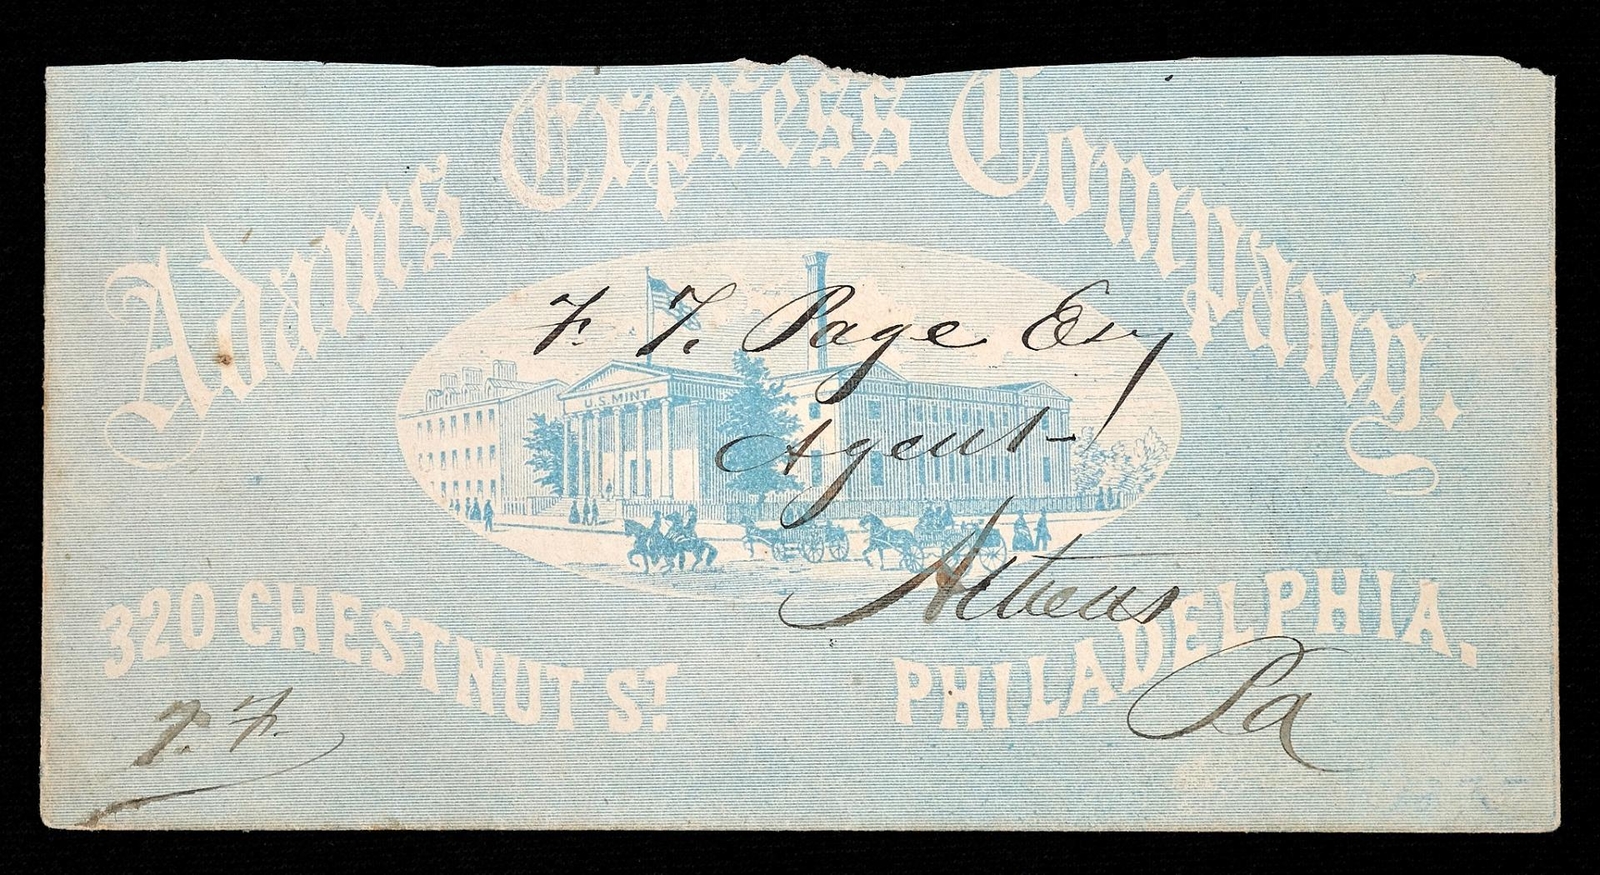 Adams Express Company.
U.S. MINT
F. T. Page Esq
Agent
Athens
Pa
320 CHESTNUT ST.
PHILADELPHIA.
F. F.